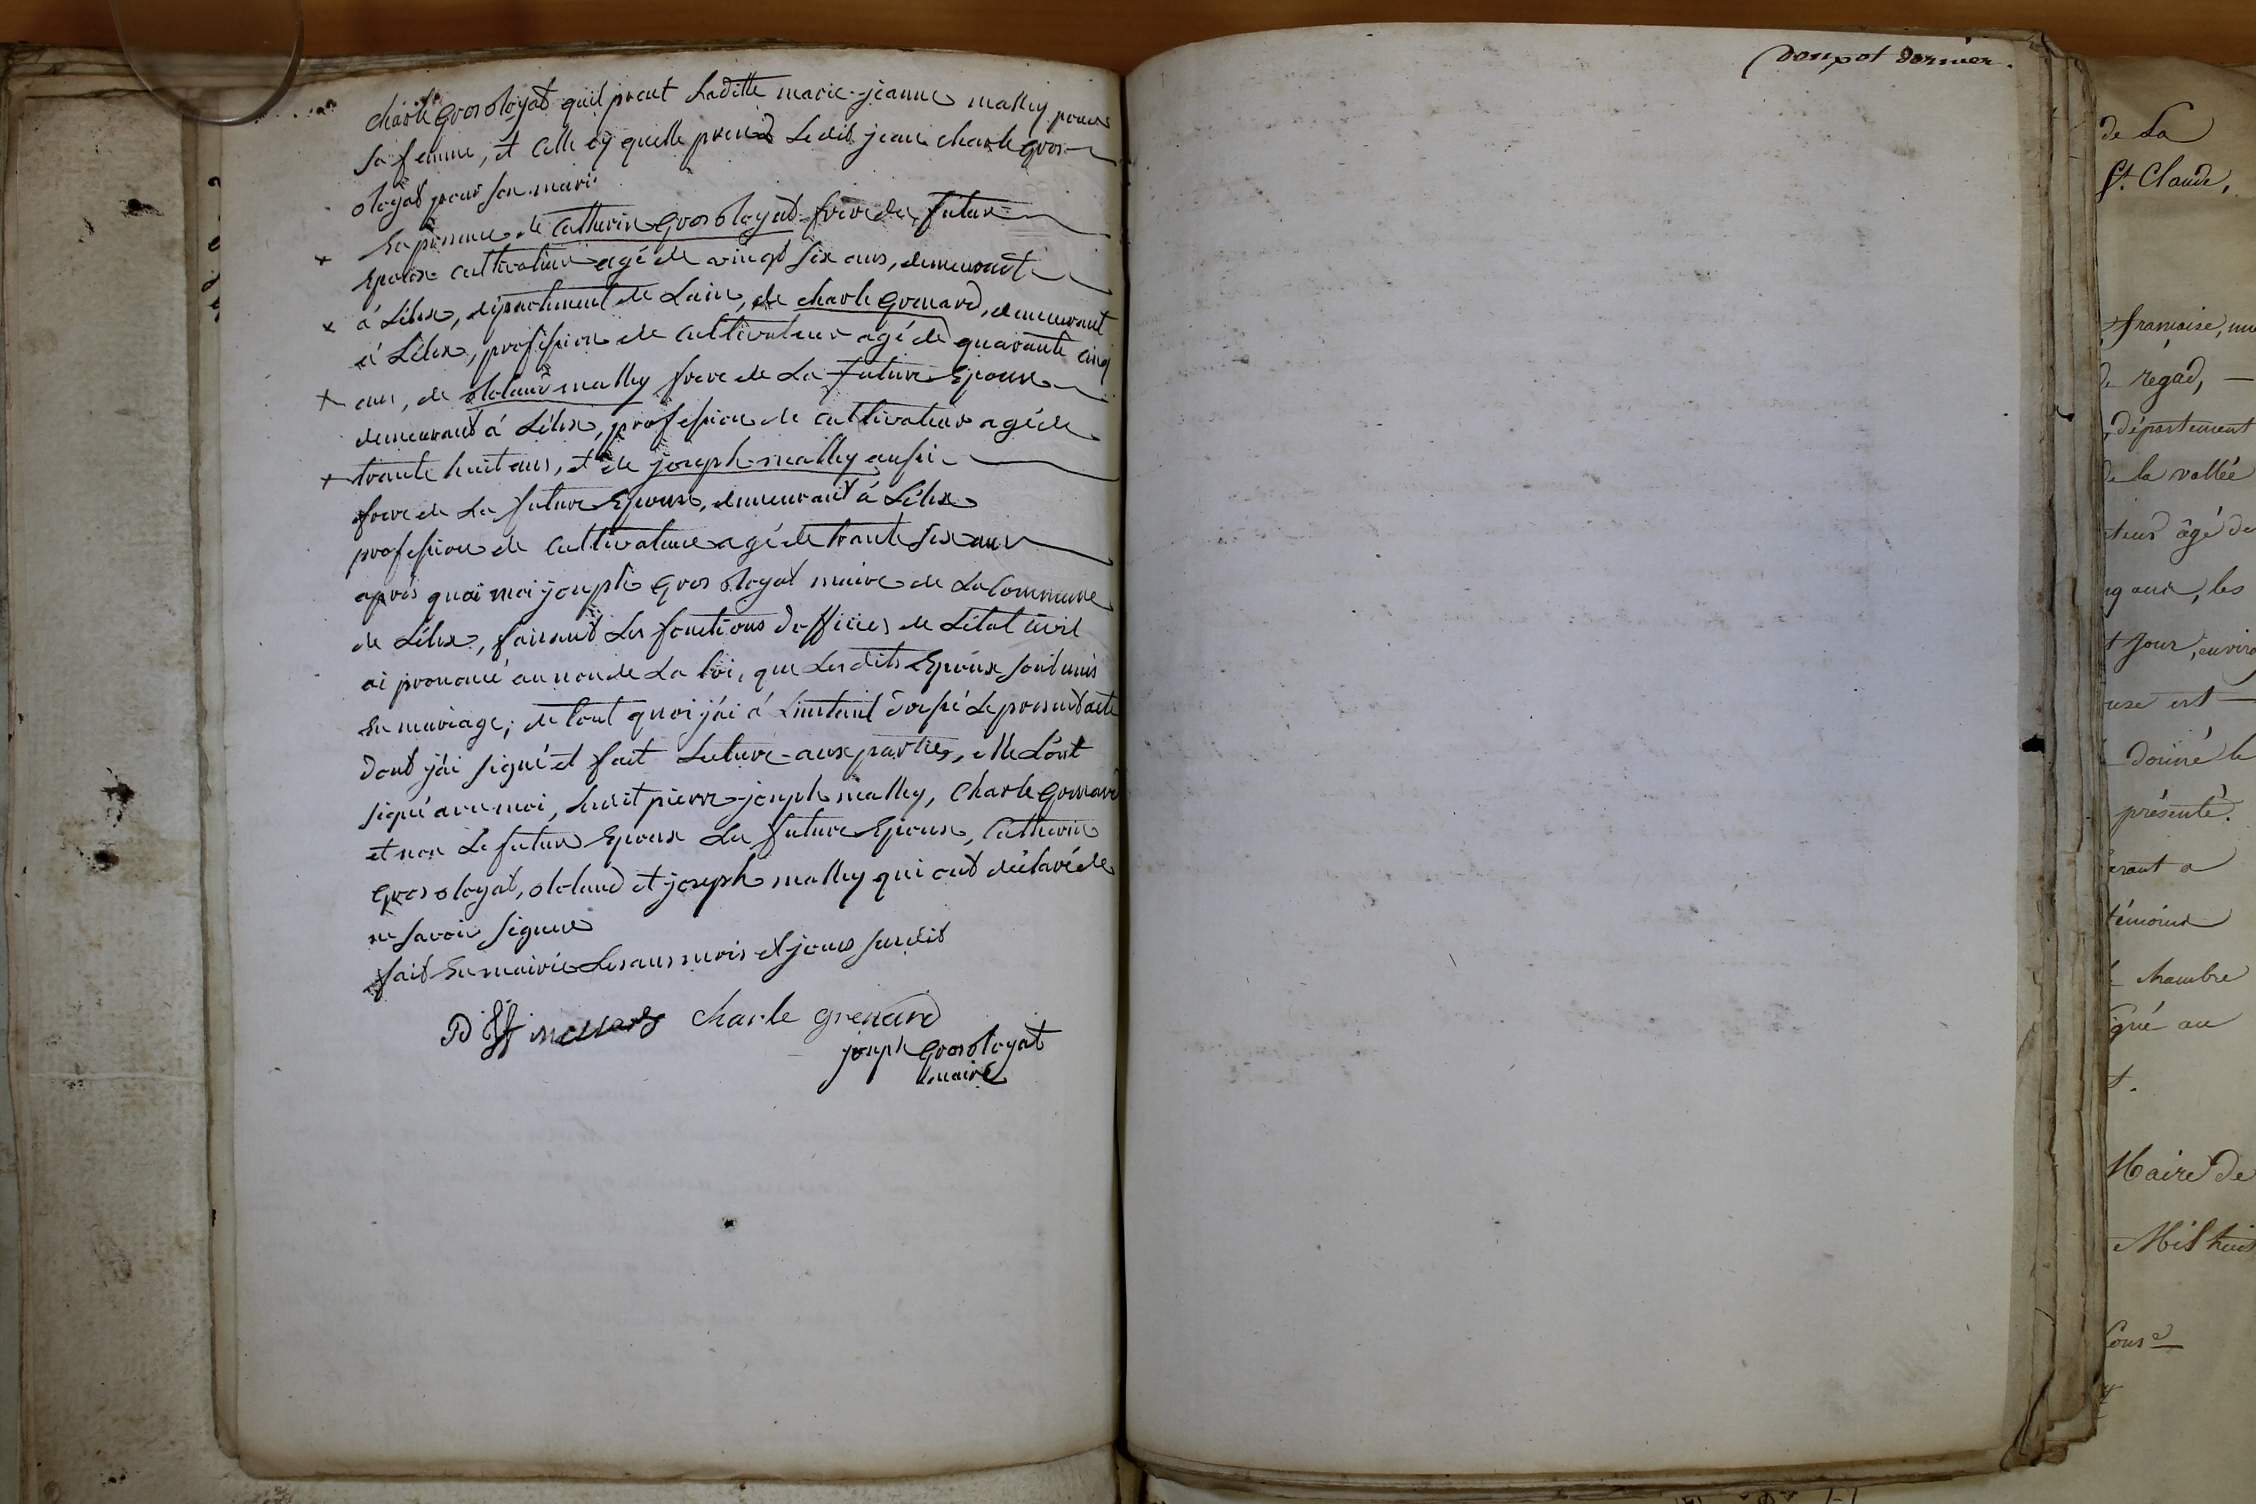 charle Grosoleyat quil prent Laditte marie-jeanne malley pour
sa femme, et celle cÿ quelle prend Ledit jean charle gros-
oleyat pour son mari
En presence de Catherin Grosoleyat frere du futur
Epoux cultivateur agé de vingt six ans, demeurant
á Lélex, département de Lain, de charle Grenard, demeurant
á Lélex, profession de cultivateur agé de quarante cinq
ans, de malley frere de La future Epouse
demeurant á Lélex, profession de cultivateur agé de
trante huit ans, et de joseph malley aussi
frere de La future Epouse, demeurant á Lélex
profession de cultivateur agé de trante six ans
aprés quoi moi joseph Gros oleyat maire de La Commune
de Lélex, faisant Les fonctions dofficier de Létat civil
ai prononcé au nom de La loi, que Lesdits Epoux sont unis
En mariage; de tout quoi j'ai á Linstant dressé Le present acte
dont j'ai signé et fait Lecture aux parties, elle Lont
signé avec moi, pierre-joseph malley, Charle Grenard
et non Le futur Epoux La future Epouse, Catherin
Gros oleyat, et joseph malley qui ont déclaré de
ne savoir signer
fait En mairie Les ans mois et jours susdit
Charle grenard
joseph Grosoleyat
maire
dernier.
de La
St. Claude,
française, une
de regad,
département
de la vallée
teur âgé de
ans, les
t jour, environ
use est
donné le
présenté.
témoins
chambre
gné au
Maire de
Mil huit